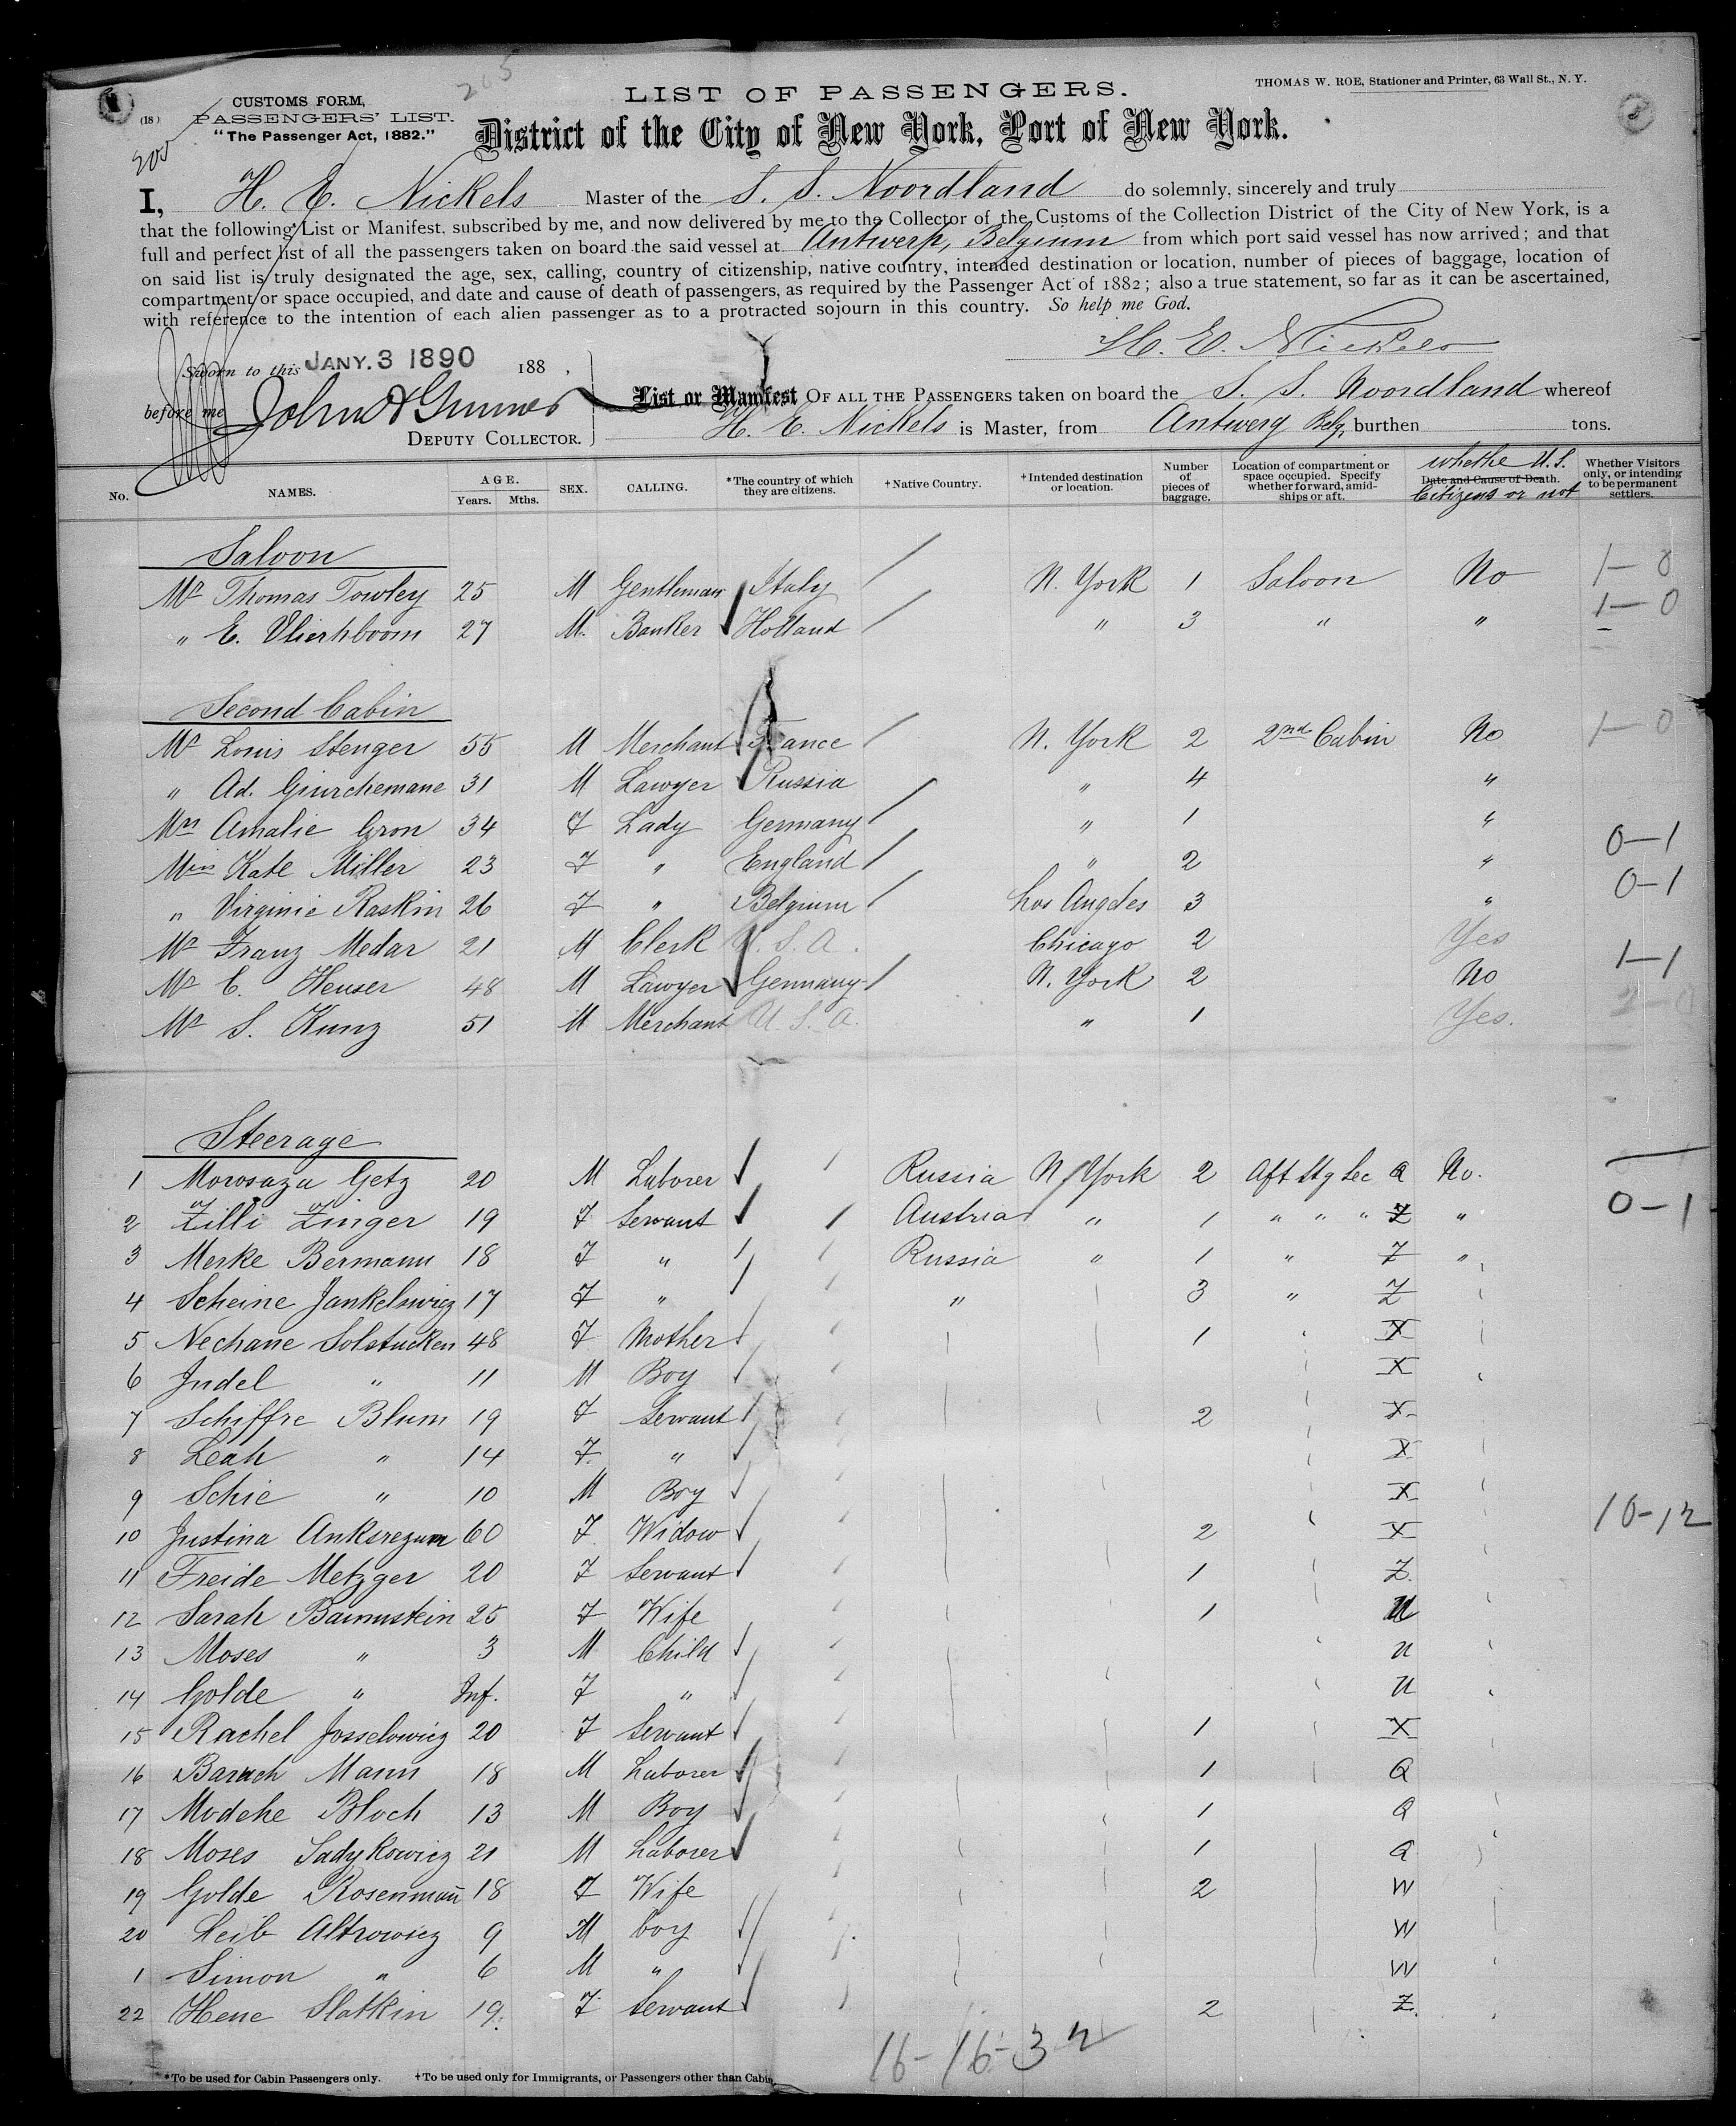 LIST OF PASSENGERS.
THOMAS W. ROE, Stationer and Printer, 63 Wall St., N. Y.
(18)
CUSTOMS FORM,
PASSENGERS' LIST.
"The Passenger Act, 1882."
District of the City of New York, Port of New York.
I, H. E. Nickels Master of the S. S. Noordland do solemnly, sincerely and truly
that the following List or Manifest, subscribed by me, and now delivered by me to the Collector of the Customs of the Collection District of the City of New York, is a
full and perfect list of all the passengers taken on board the said vessel at Antwerp, Belgium from which port said vessel has now arrived; and that
on said list is truly designated the age, sex, calling, country of citizenship, native country, intended destination or location, number of pieces of baggage, location of
compartment or space occupied, and date and cause of death of passengers, as required by the Passenger Act of 1882; also a true statement, so far as it can be ascertained,
with reference to the intention of each alien passenger as to a protracted sojourn in this country. So help me God.
H. E. Nickels
Sworn to this JANY. 3 1890 188 ,
before me
DEPUTY COLLECTOR.
List or Manifest OF ALL THE PASSENGERS taken on board the S. S. Noordland whereof
H. E. Nickels is Master, from Antwerp Belg, burthen tons.
No. NAMES. AGE. Years. Mths. SEX. CALLING. *The country of which they are citizens. †Native Country. †Intended destination or location. Number of pieces of baggage. Location of compartment or space occupied. Specify whether forward, amidships or aft. Date and Cause of Death. whethe U.S. Citizens or not Whether Visitors only, or intending to be permanent settlers.
Saloon
Mr Thomas Towley 25 M Gentleman Italy N. York 1 Saloon No 1-0
" E. Vlierhboom 27 M. Banker Holland " 3 " " 1-0
Second Cabin
Mr Louis Stenger 55 M Merchant France N. York 2 2nd Cabin No 1-0
" Ad. Giurchemane 31 M Lawyer Russia " 4 "
Mrs Amalie Gron 34 F Lady Germany " 1 "
Miss Kate Miller 23 F " England " 2 " 0-1
" Virginie Raskin 26 F " Belgium Los Angeles 3 " 0-1
Mr Franz Medar 21 M Clerk U. S. A. Chicago 2 Yes
Mr C. Heuser 48 M Lawyer Germany N. York 2 No 1-1
Mr S. Kunz 51 M Merchant U. S. A. " 1 Yes.
Steerage
1 Morosaza Getz 20 M Laborer Russia N. York 2 Aft Stg Sec Q No.
2 Zilli Zinger 19 F Servant Austria " 1 " " " Z " 0-1
3 Merke Bermann 18 F " Russia " 1 " Z "
4 Scheine Jankelowicz 17 F " " 3 " Z
5 Nechane Solstucken 48 F Mother 1 X
6 Judel " 11 M Boy X
7 Schiffre Blum 19 F Servant 2 X
8 Leah " 14 F. " X
9 Schie " 10 M Boy X
10 Justina 60 F Widow 2 X 10-12
11 Freide Metzger 20 F Servant 1 Z.
12 Sarah Baumstein 25 F Wife 1 U
13 Moses " 3 M Child U
14 Golde " Inf. F " U
15 Rachel Josselowicz 20 F Servant 1 X
16 Baruch Mann 18 M Laborer 1 Q
17 Modche Bloch 13 M Boy 1 Q
18 Moses Sadykowicz 21 M Laborer 1 Q
19 Golde Rosenmañ 18 F Wife 2 W
20 Leib Altrowicz 9 M boy W
1 Simon " 6 M " W
22 Hene Slatkin 19. F Servant 2 Z.
16-16-32
*To be used for Cabin Passengers only. †To be used only for Immigrants, or Passengers other than Cabin.